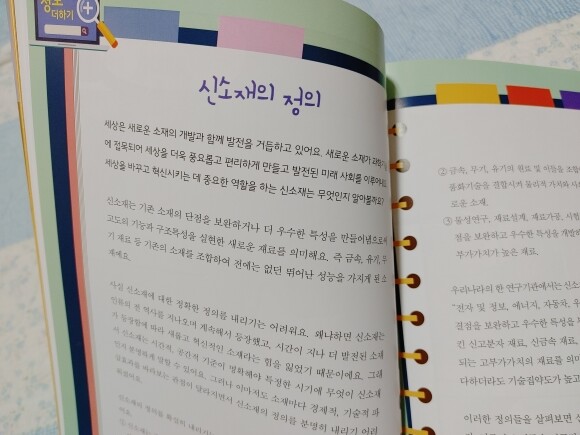 정보
더하기
신소재의 정의
세상은 새로운 소재의 개발과 함께 발전을 거듭하고 있어요. 새로운 소재가
에 접목되어 세상을 더욱 풍요롭고 편리하게 만들고 발전된 미래 사회를
세상을 바꾸고 혁신시키는 데 중요한 역할을 하는 신소재는 무엇인지 알아볼까요?
신소재는 기존 소재의 단점을 보완하거나 더 우수한 특성을 만들어냄으로써
고도의 기능과 구조특성을 실현한 새로운 재료를 의미해요. 즉 금속, 유기, 무
기 재료 등 기존의 소재를 조합하여 전에는 없던 뛰어난 성능을 가지게 된 소
재예요.
사실 신소재에 대한 정확한 정의를 내리기는 어려워요. 왜냐하면 신소재는
인류의 전 역사를 지나오며 계속해서 등장했고, 시간이 지나 더 발전된 소재
가 등장함에 따라 새롭고 혁신적인 소재라는 힘을 잃었기 때문이에요. 그래
서 신소재는 시간적, 공간적 기준이 명확해야 특정한 시기에 무엇이 신소재
인지 분명하게 말할 수 있어요. 그러나 아마지도 소재마다 경제적, 기술적 파
급효과를 바라보는 관점이 달라지면서 신소재의 정의를 분명히 내리기 어려
워졌어요.
신소재의 정의를 확실히 내리기는
② 금속, 무기, 유기의 원료 및 이들을 조합한
로운 소재.
③ 물성연구, 재료설계, 재료가공, 시험
점을 보완하고 우수한 특성을
부가가치가 높은 재료.
우리나라의 한 연구기관에서는 신소
"전자 및 정보, 에너지, 자동차, 우
결점을 보완하고 우수한 특성을
킨 신고분자 재료, 신금속 재료,
되는 고부가가치의 재료를 의미
다하더라도 기술집약도가 높고
이러한 정의들을 살펴보면